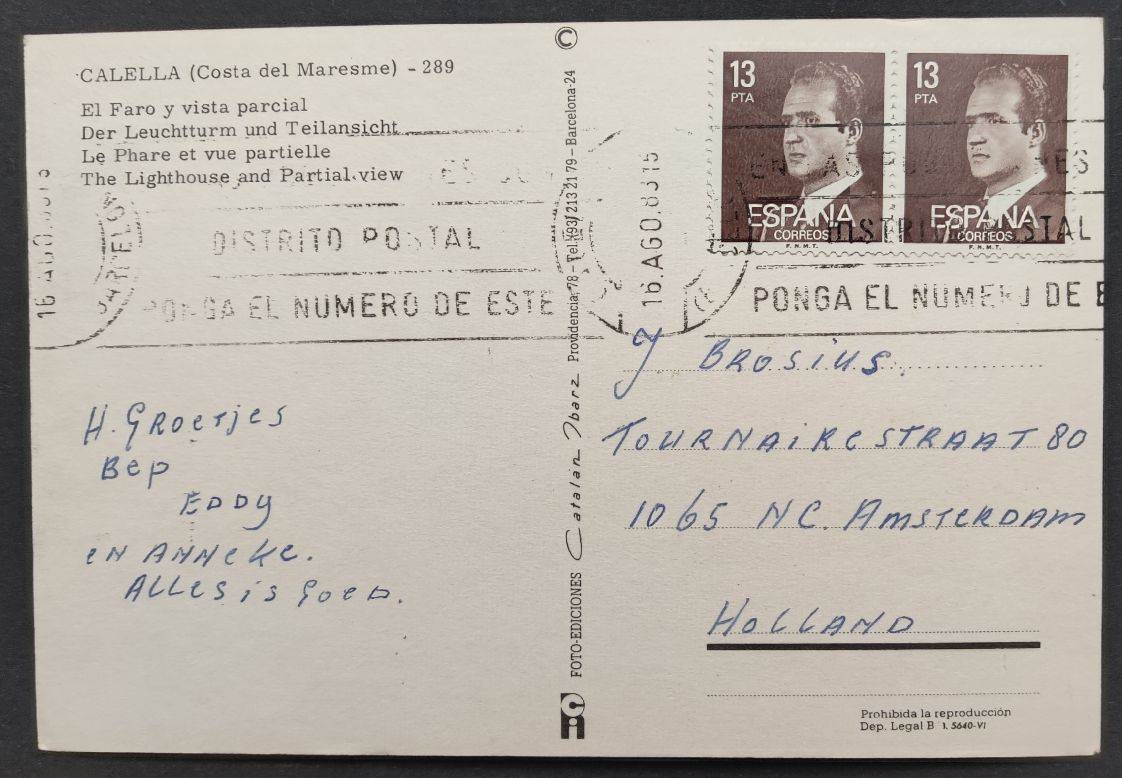 CALELLA (Costa del Maresme) - 289
El Faro y vista parcial
Der Leuchtturm und Teilansicht
Le Phare et vue partielle
The Lighthouse and Partial view
16 AGO.83 15
DISTRITO POSTAL
PONGA EL NUMERO DE ESTE
H. GROETJES
BEP
EDDY
EN ANNEKE.
ALLES IS GOED.
©
FOTO-EDICIONES Catalán Ibarz Providencia, 78 - Tel. (93) 213 21 79 - Barcelona-24
13
PTA
ESPAÑA
CORREOS
F.N.M.T.
13
PTA
ESPAÑA
CORREOS
F.N.M.T.
16.AGO.83 15
DISTRITO POSTAL
PONGA EL NUMERO DE E
J BROSIUS.
TOURNAIRESTRAAT 80
1065 NC. AMSTERDAM
HOLLAND
Prohibida la reproducción
Dep. Legal B. 1. 5640-VI